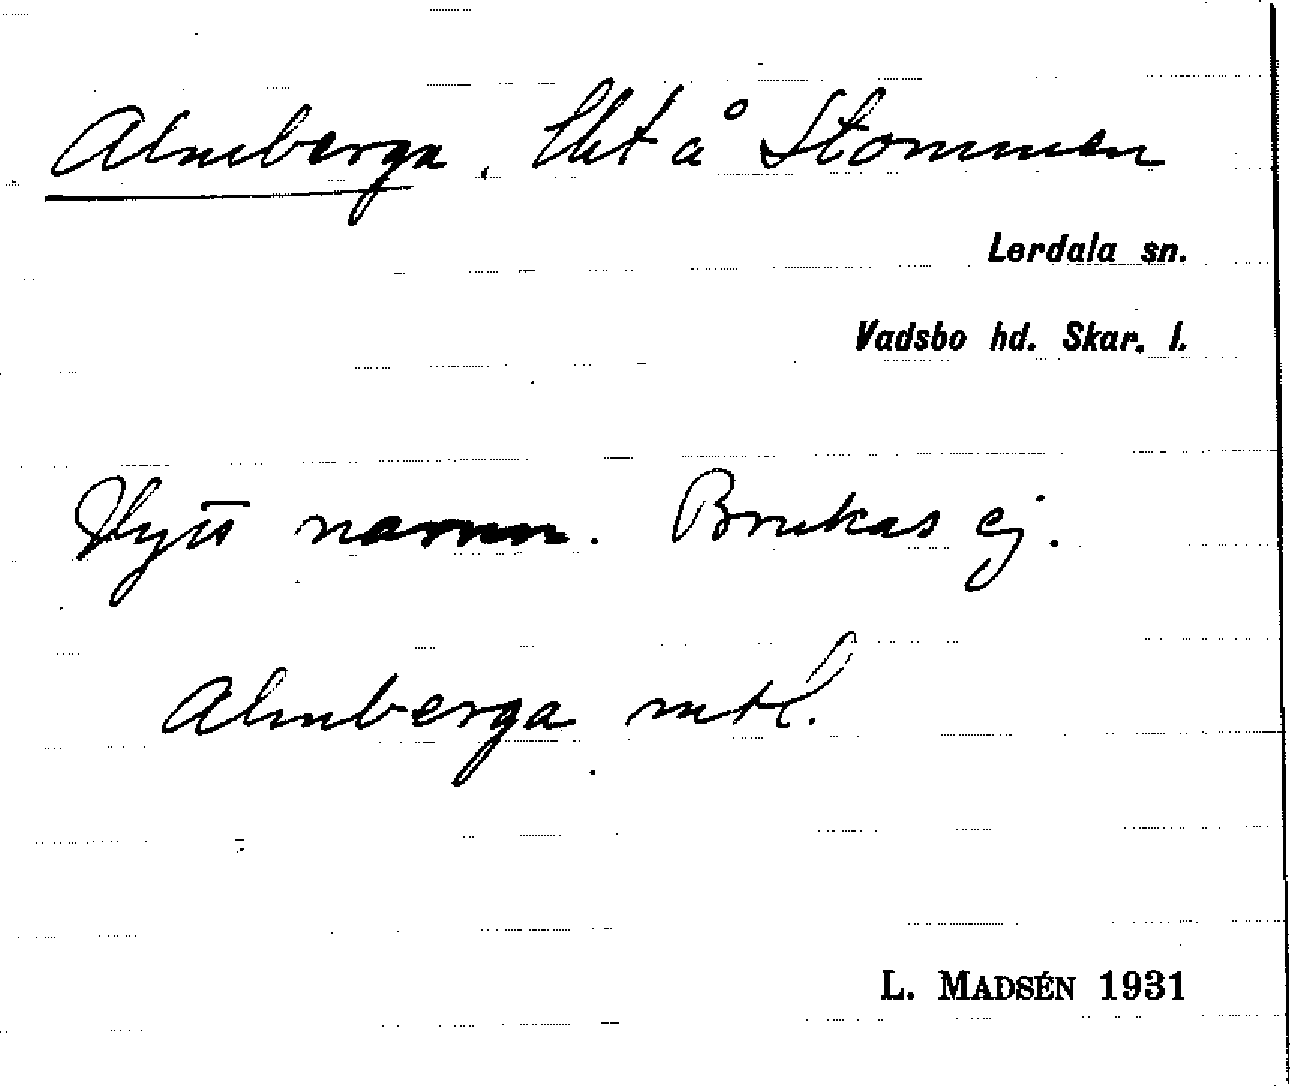 Almberga, lht å Stommen
Lerdala sn.
Vadsbo hd. Skar. l.
Nytt namn. Brukas ej.
Almberga mtl.
L. MADSÉN 1931